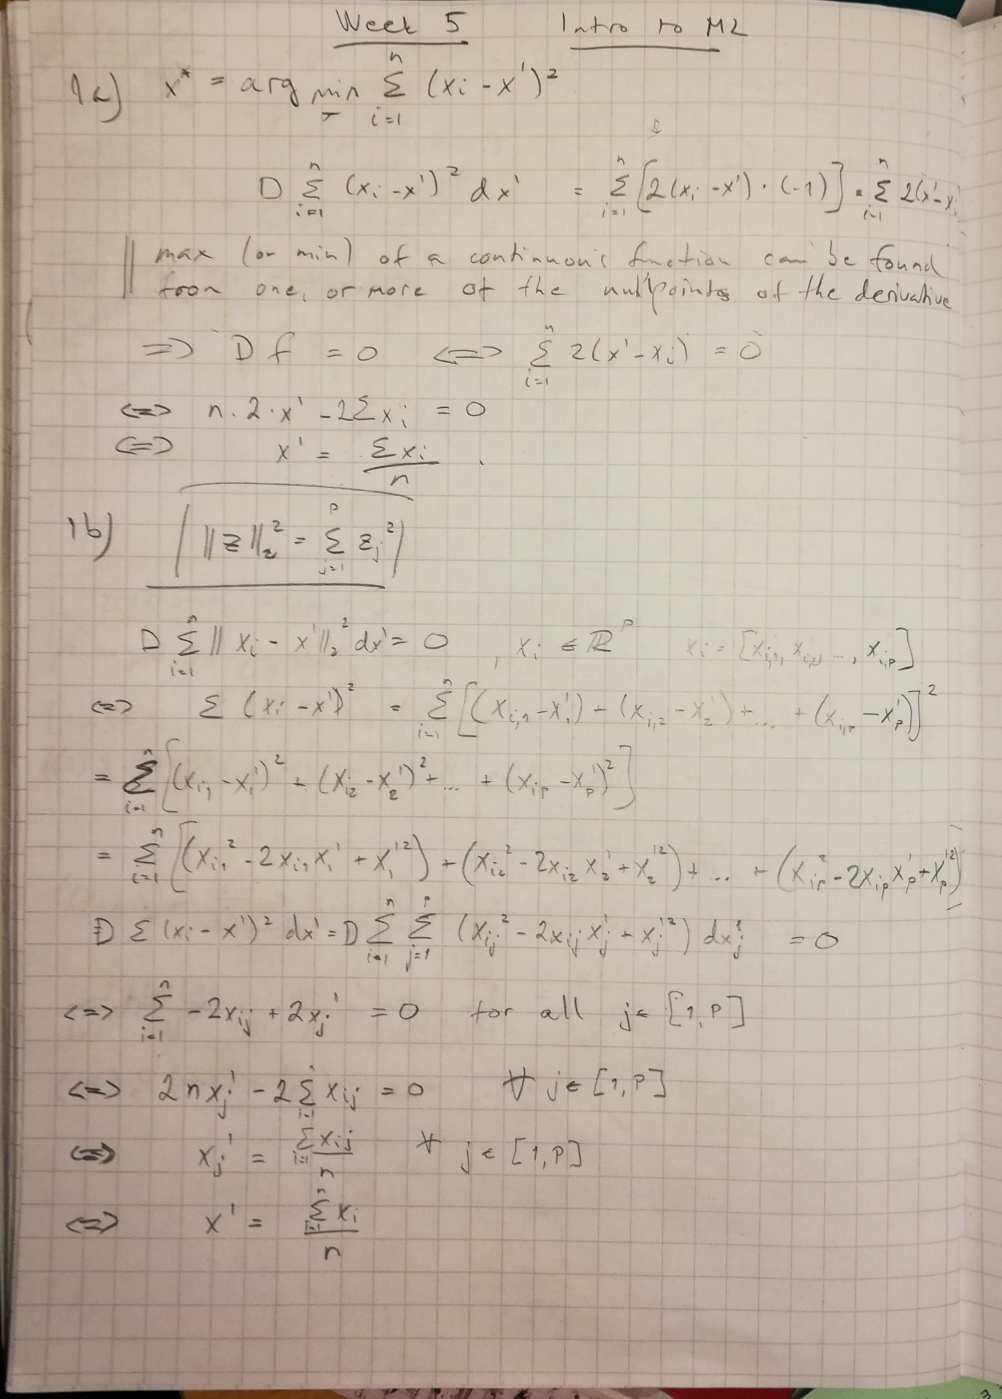 Week 5 Intro to ML
1a) x* = arg min Σ_{i=1}^{n} (xi - x')²
D Σ_{i=1}^{n} (xi - x')² dx' = Σ_{i=1}^{n} [2(xi - x') · (-1)] = Σ_{i=1}^{n} 2(x' - xi
|| max (or min) of a continuous function can be found
from one, or more of the nullpoints of the derivative
=> Df = 0 <=> Σ_{i=1}^{n} 2(x' - xi) = 0
<=> n · 2 · x' - 2Σxi = 0
<=> x' = Σxi / n .
1b) ||z||₂² = Σ_{j=1}^{p} zj²
D Σ_{i=1}^{n} || xi - x' ||₂² dx' = 0 , xi ∈ ℝ^p xi = [xi,1, xi,2, .., xi,p]
<=> Σ (xi - x')² = Σ_{i=1}^{n} [(xi,1 - x1') + (xi,2 - x2') + ... + (xi,p - xp')]²
= Σ_{i=1}^{n} [(xi1 - x1')² + (xi2 - x2')² + ... + (xip - xp')²]
= Σ_{i=1}^{n} [(xi1² - 2xi1x1' + x1'²) + (xi2² - 2xi2x2' + x2'²) + .. + (xip² - 2xipxp' + xp'²)]
D Σ (xi - x')² dx' = D Σ_{i=1}^{n} Σ_{j=1}^{p} (xij² - 2xijxj' + xj'²) dxj' = 0
<=> Σ_{i=1}^{n} -2xij + 2xj' = 0 for all j ∈ [1,P]
<=> 2nxj' - 2Σ_{i=1} xij = 0 ∀ j ∈ [1,P]
<=> xj' = Σ_{i=1} xij / n ∀ j ∈ [1,P]
<=> x' = Σ_{i=1}^{n} xi / n